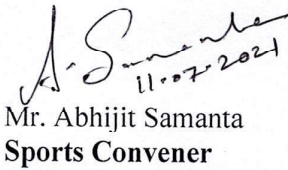 A. Samanta
11.07.2021
Mr. Abhijit Samanta
Sports Convener